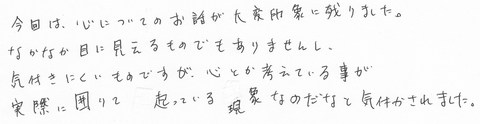 今回は、心についてのお話が大変印象に残りました。
なかなか目に見えるものでもありませんし、
気付きにくいものですが、心とか考えている事が
実際に困りて 起っている 現象なのだなと気付かされました。